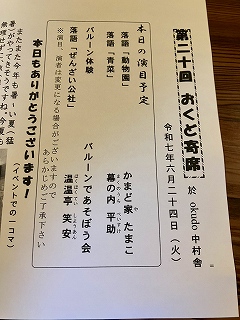 第二十回 おくど寄席
於 okudo 中村舎
令和七年六月二十四日(火)
本日の演目予定
落語「動物園」 かまど家 たまこ
落語「青菜」 幕の内 平助
バルーン体験 バルーンであそぼう会
落語「ぜんざい公社」 温温亭 笑安
※演目、演者は変更になる場合がございますので
あらかじめご了承下さい
本日もありがとうございます!
またまた今年も暑い夏
(イベントでの一コマ)